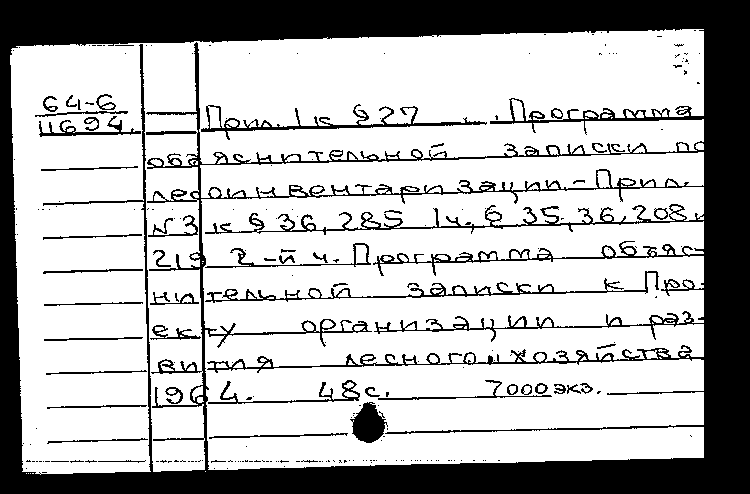 64-6
11694.
Прил. 1 к § 27 . . Программа
объяснительной записки по
лесоинвентаризации.-Прил.
N3 к § 36, 285 1ч., § 35, 36, 208 и
219 2-й ч. Программа объяс-
нительной записки к Про-
екту организации и раз-
вития лесного хозяйства
1964. 48с. 7000 экз.